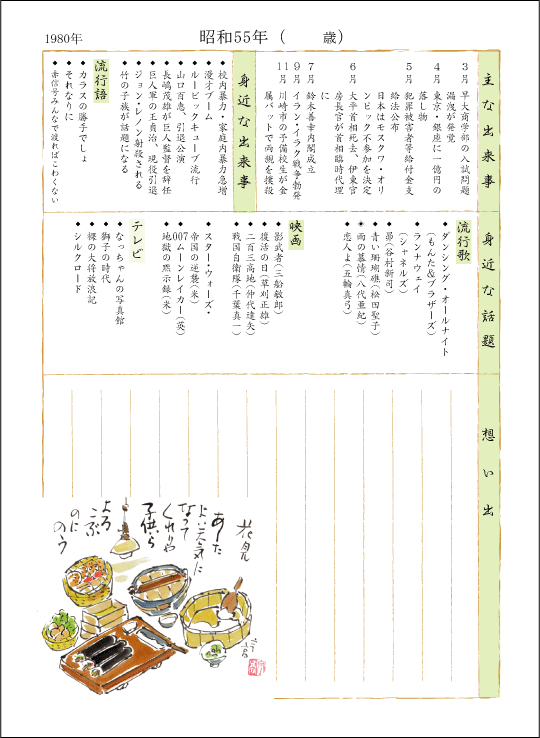 1980年
昭和55年（　　歳）
主な出来事
3月 早大商学部の入試問題
漏洩が発覚
4月 東京・銀座に一億円の
落し物
5月 犯罪被害者等給付金支
給法公布
日本はモスクワ・オリ
ンピック不参加を決定
6月 大平首相死去、伊東官
房長官が首相臨時代理
に
7月 鈴木善幸内閣成立
9月 イラン・イラク戦争勃発
11月 川崎市の予備校生が金
属バットで両親を撲殺
身近な出来事
●校内暴力・家庭内暴力急増
●漫才ブーム
●ルービックキューブ流行
●山口百恵、引退公演
●長嶋茂雄が巨人監督を辞任
●巨人軍の王貞治、現役引退
●ジョン・レノン射殺される
●竹の子族が話題になる
流行語
●カラスの勝手でしょ
●それなりに
●赤信号みんなで渡ればこわくない
身近な話題
流行歌
●ダンシング・オールナイト
（もんた&ブラザーズ）
●ランナウェイ
（シャネルズ）
●昴（谷村新司）
●青い珊瑚礁（松田聖子）
●雨の慕情（八代亜紀）
●恋人よ（五輪真弓）
映画
●影武者（三船敏郎）
●復活の日（草刈正雄）
●二百三高地（仲代達矢）
●戦国自衛隊（千葉真一）
スター・ウォーズ・
●帝国の逆襲（米）
●007ムーンレイカー（英）
●地獄の黙示録（米）
テレビ
●なっちゃんの写真館
●獅子の時代
●裸の大将放浪記
●シルクロード
想い出
花見
あした
よい天気に
なって
くれりや
子供ら
よろ
こぶ
のに
のう